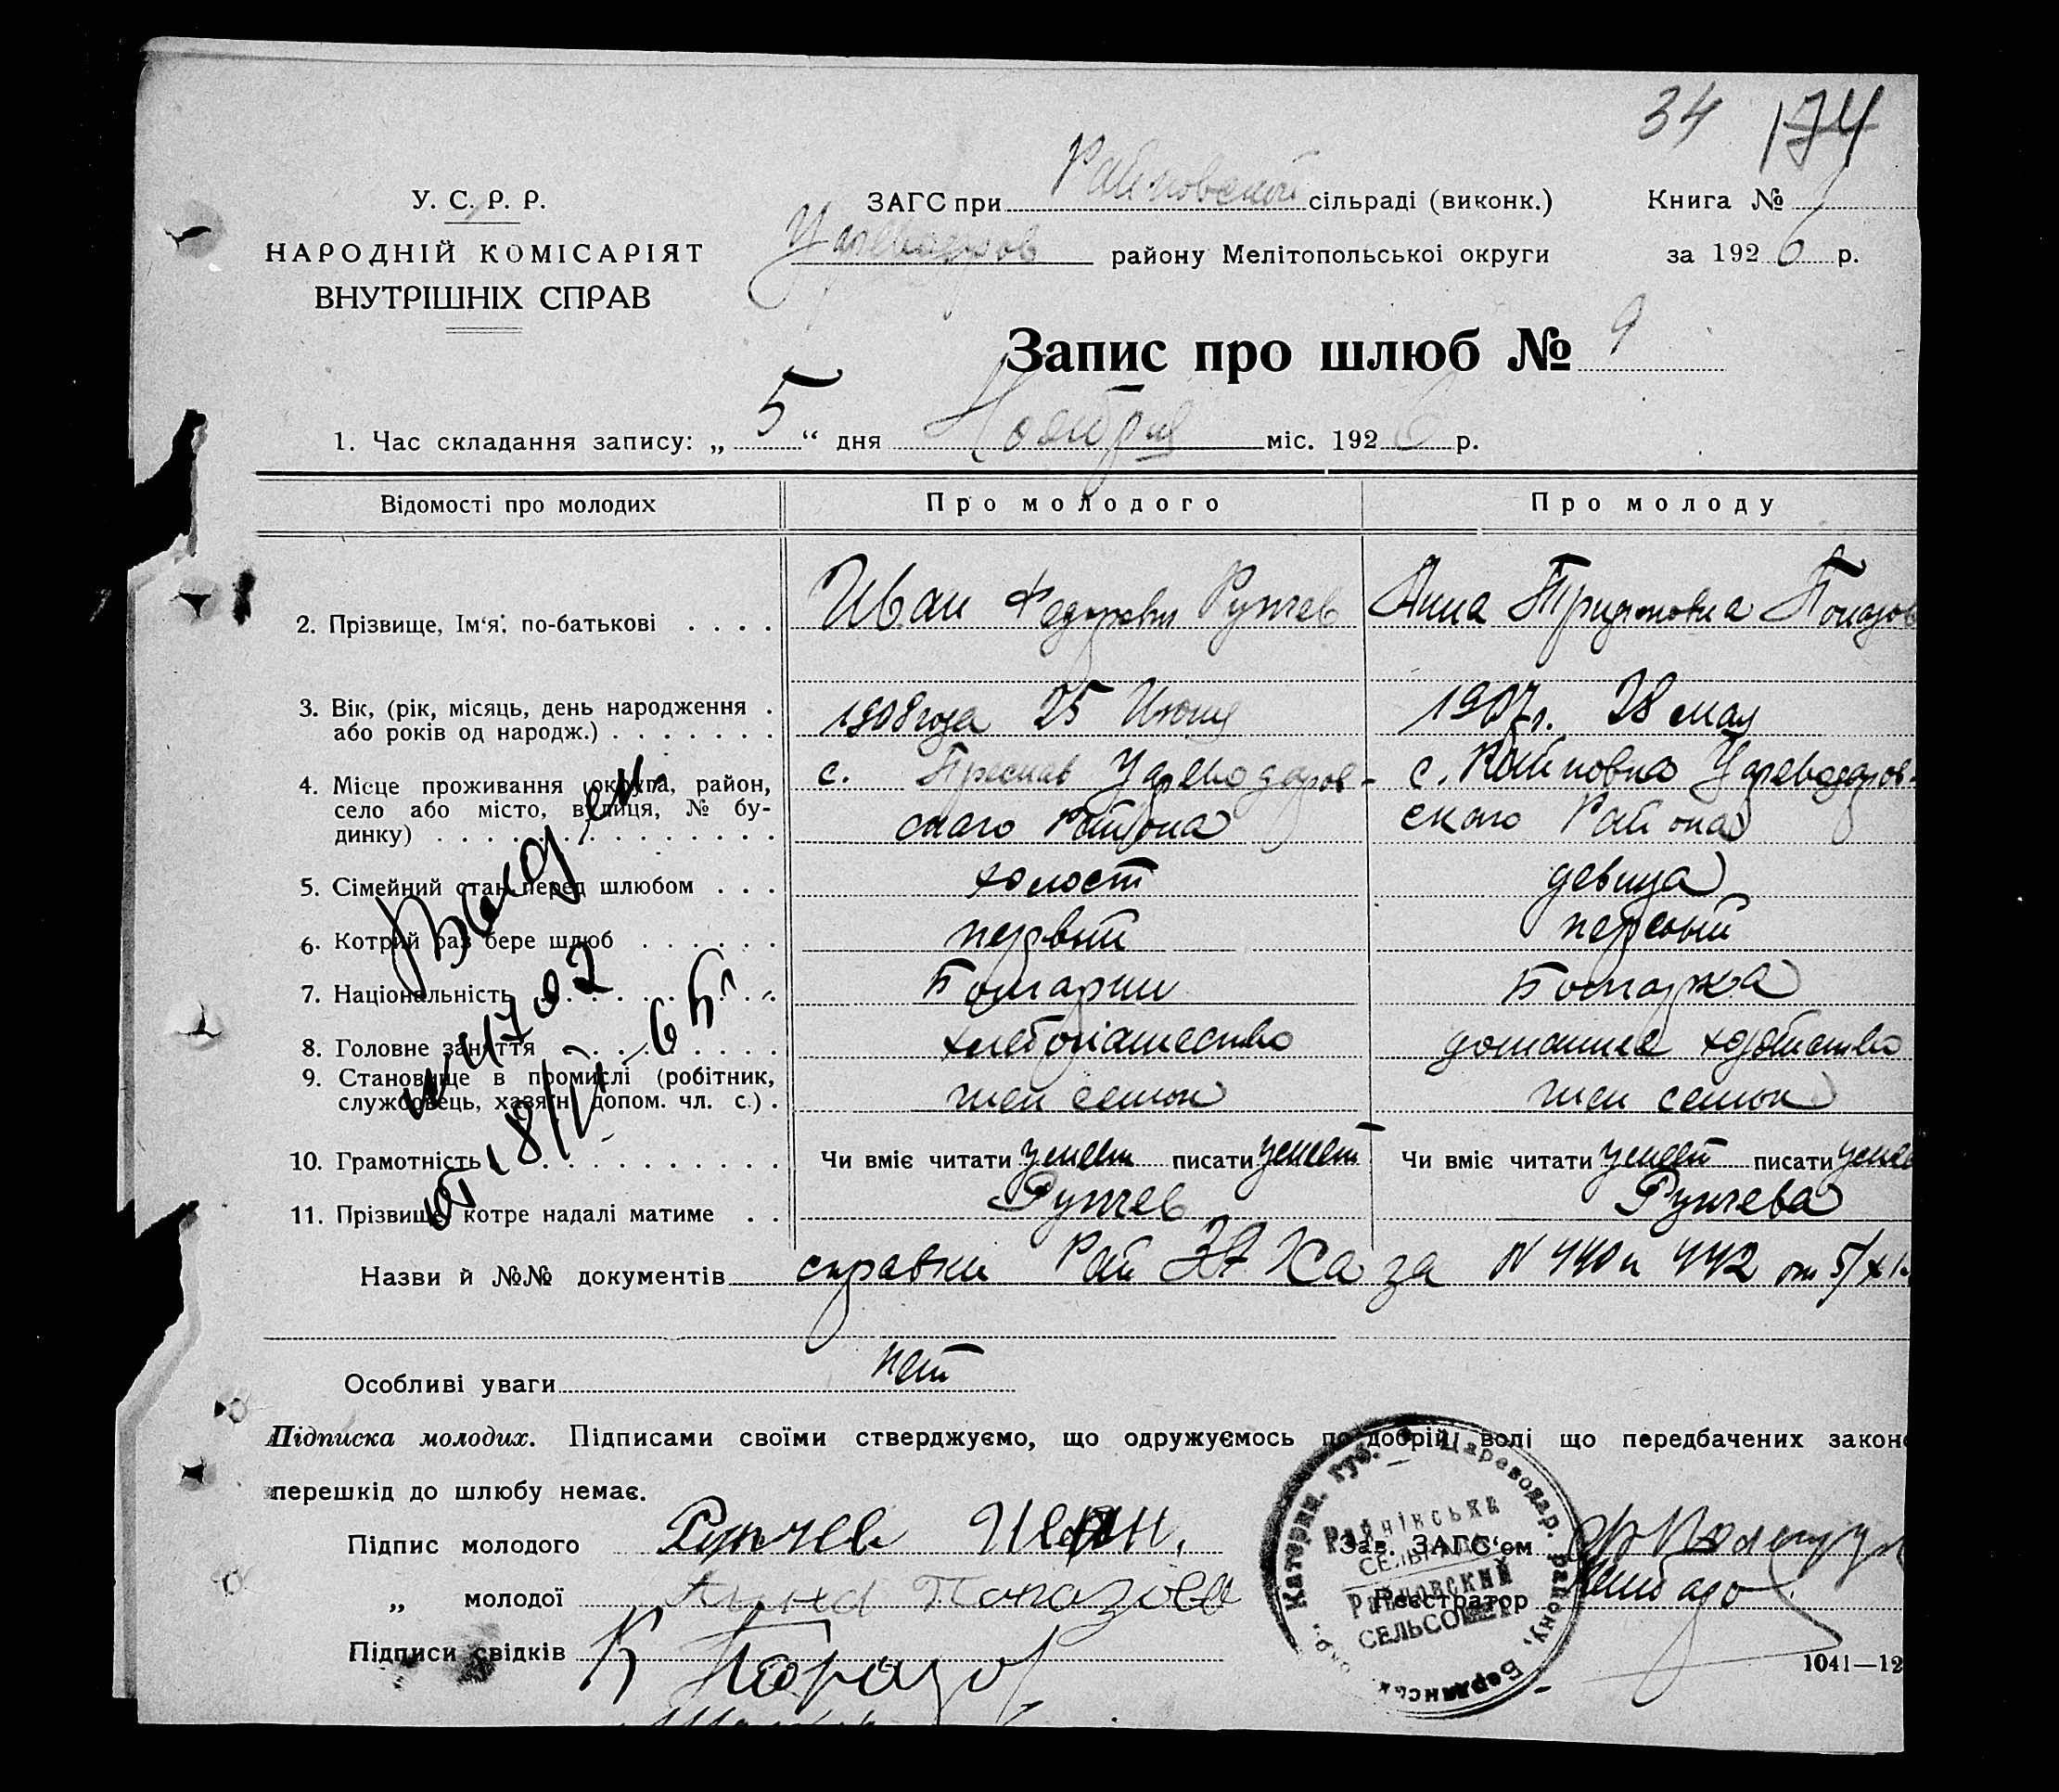 34 174
У. С. Р. Р.
НАРОДНІЙ КОМІСАРІЯТ
ВНУТРІШНІХ СПРАВ
ЗАГС при Райновской сільраді (виконк.)
Цареводаров району Мелітопольської округи
Книга №
за 1926 р.
Запис про шлюб № 9
1. Час складання запису: „ 5 “ дня Ноября міс. 1926 р.
Відомості про молодих Про молодого Про молоду
2. Прізвище, Ім‘я, по-батькові . . . . Иван Федорович Рупчев Анна Трифоновна Попазов
3. Вік, (рік, місяць, день народження . 1908 года 25 Июня 1907 г. 28 мая
або років од народж.) . . . . . . .
4. Місце проживання (округа, район, с. Преслав Цареводаров- с. Райновка Цареводаров-
село або місто, вулиця, № бу- ского Района ского Района
динку) . . . . . . . . . . . . . .
5. Сімейний стан перед шлюбом . . . холост девица
6. Котрий раз бере шлюб . . . . . . первый первый
7. Національність . . . . . . . . . . Болгарин Болгарка
8. Головне заняття . . . . . . . . . хлебопашество домашнее хозяйство
9. Становище в промислі (робітник, член семьи член семьи
службовець, хазяїн, допом. чл. с.) .
10. Грамотність . . . . . . . . . . . Чи вміє читати умеет писати умеет Чи вміє читати умеет писати умее
11. Прізвище, котре надалі матиме . . Рупчев Рупчева
Назви й №№ документів справки Рай ЗАГСа за N 440 и 442 от 5/XI
Особливі уваги нет
Підписка молодих. Підписами своїми стверджуємо, що одружуємось по добрій волі що передбачених законо
перешкід до шлюбу немає.
Підпис молодого Рупчев Иван.
„ молодої Анна Попазова
Підписи свідків К Попазов
Зав. ЗАГС‘ом
Реєстратор
Катерин. Губ. Цареводар. району, Бердянськ. окр.
Райнівська
СЕЛЬРАДА
Райновский
СЕЛЬСОВЕТ
1041—12
Выд
от 18/VI-65 г.